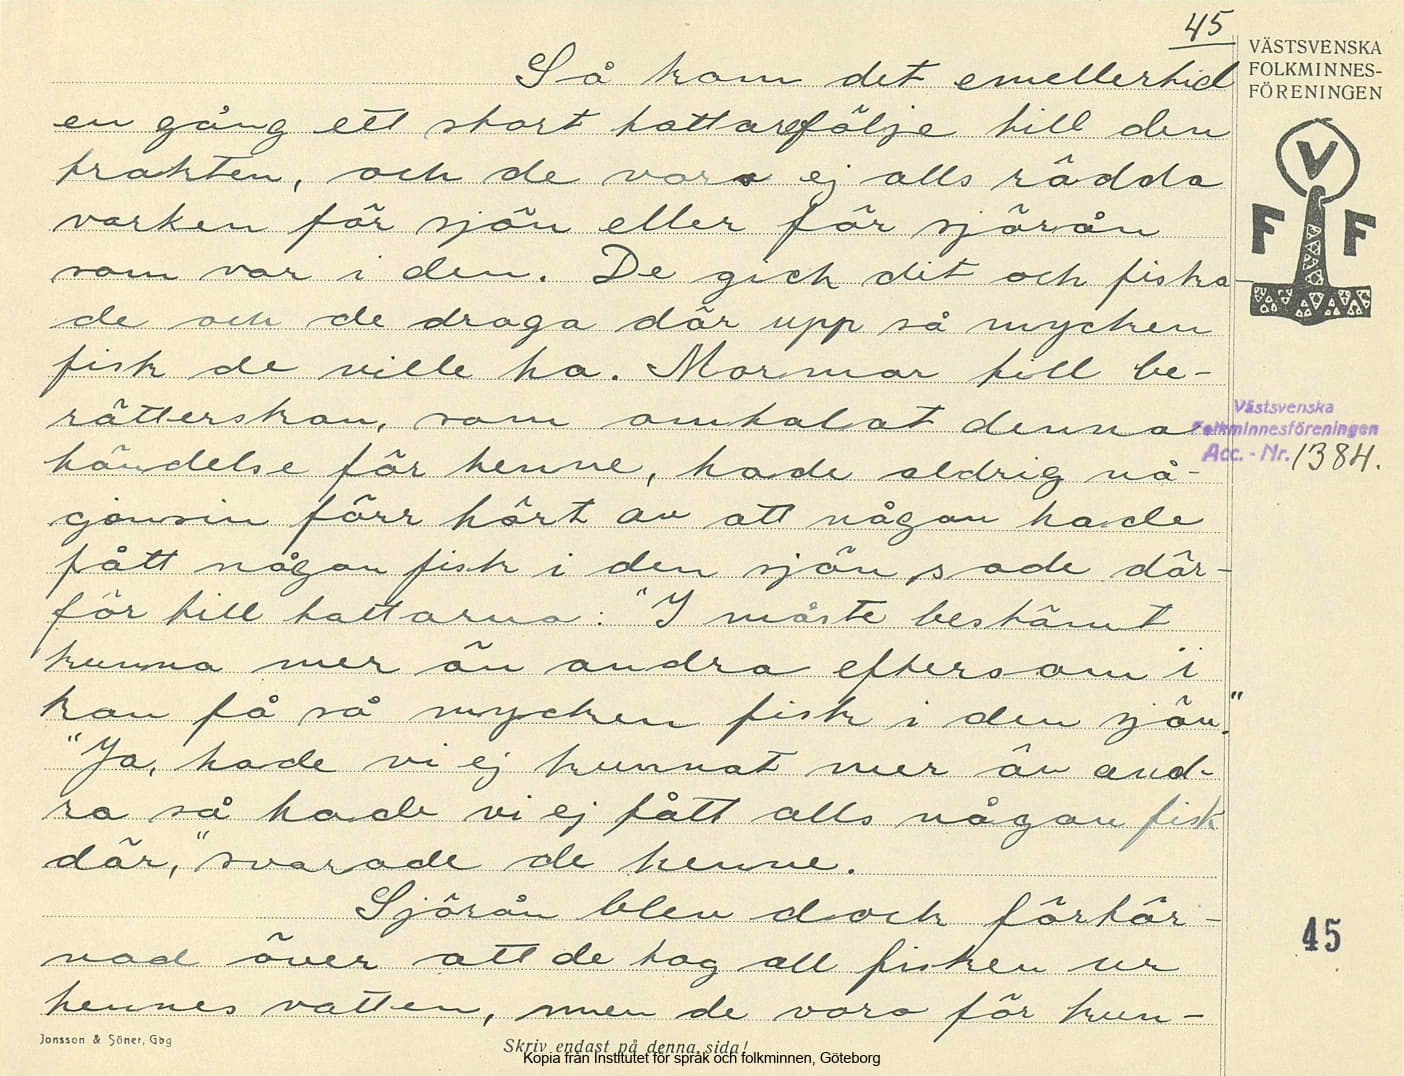 45
VÄSTSVENSKA
FOLKMINNES-
FÖRENINGEN
V
F F
Så kom det emellertid
en gång ett stort tattarefölje till den
trakten, och de voro ej alls rädda
varken för sjön eller för sjörån
som var i den. De gick dit och fiska
de och de drogo där upp så mycken
fisk de ville ha. Mormor till be-
rätterskan, som omtalat denna
händelse för henne, hade aldrig nå-
gonsin förr hört av att någon hade
fått någon fisk i den sjön, sade där-
för till tattarna: "I måste bestämt
kunna mer än andra eftersom i
kan få så mycken fisk i den sjön."
"Ja, hade vi ej kunnat mer än and-
ra så hade vi ej fått alls någon fisk
där," svarade de henne.
Sjörån blev dock förtör-
nad över att de tog all fisken ur
hennes vatten, men de voro för kun-
Västsvenska
Folkminnesföreningen
Acc. - Nr. 1384.
45
Jonsson & Söner, Gbg
Skriv endast på denna sida!
Kopia från Institutet för språk och folkminnen, Göteborg